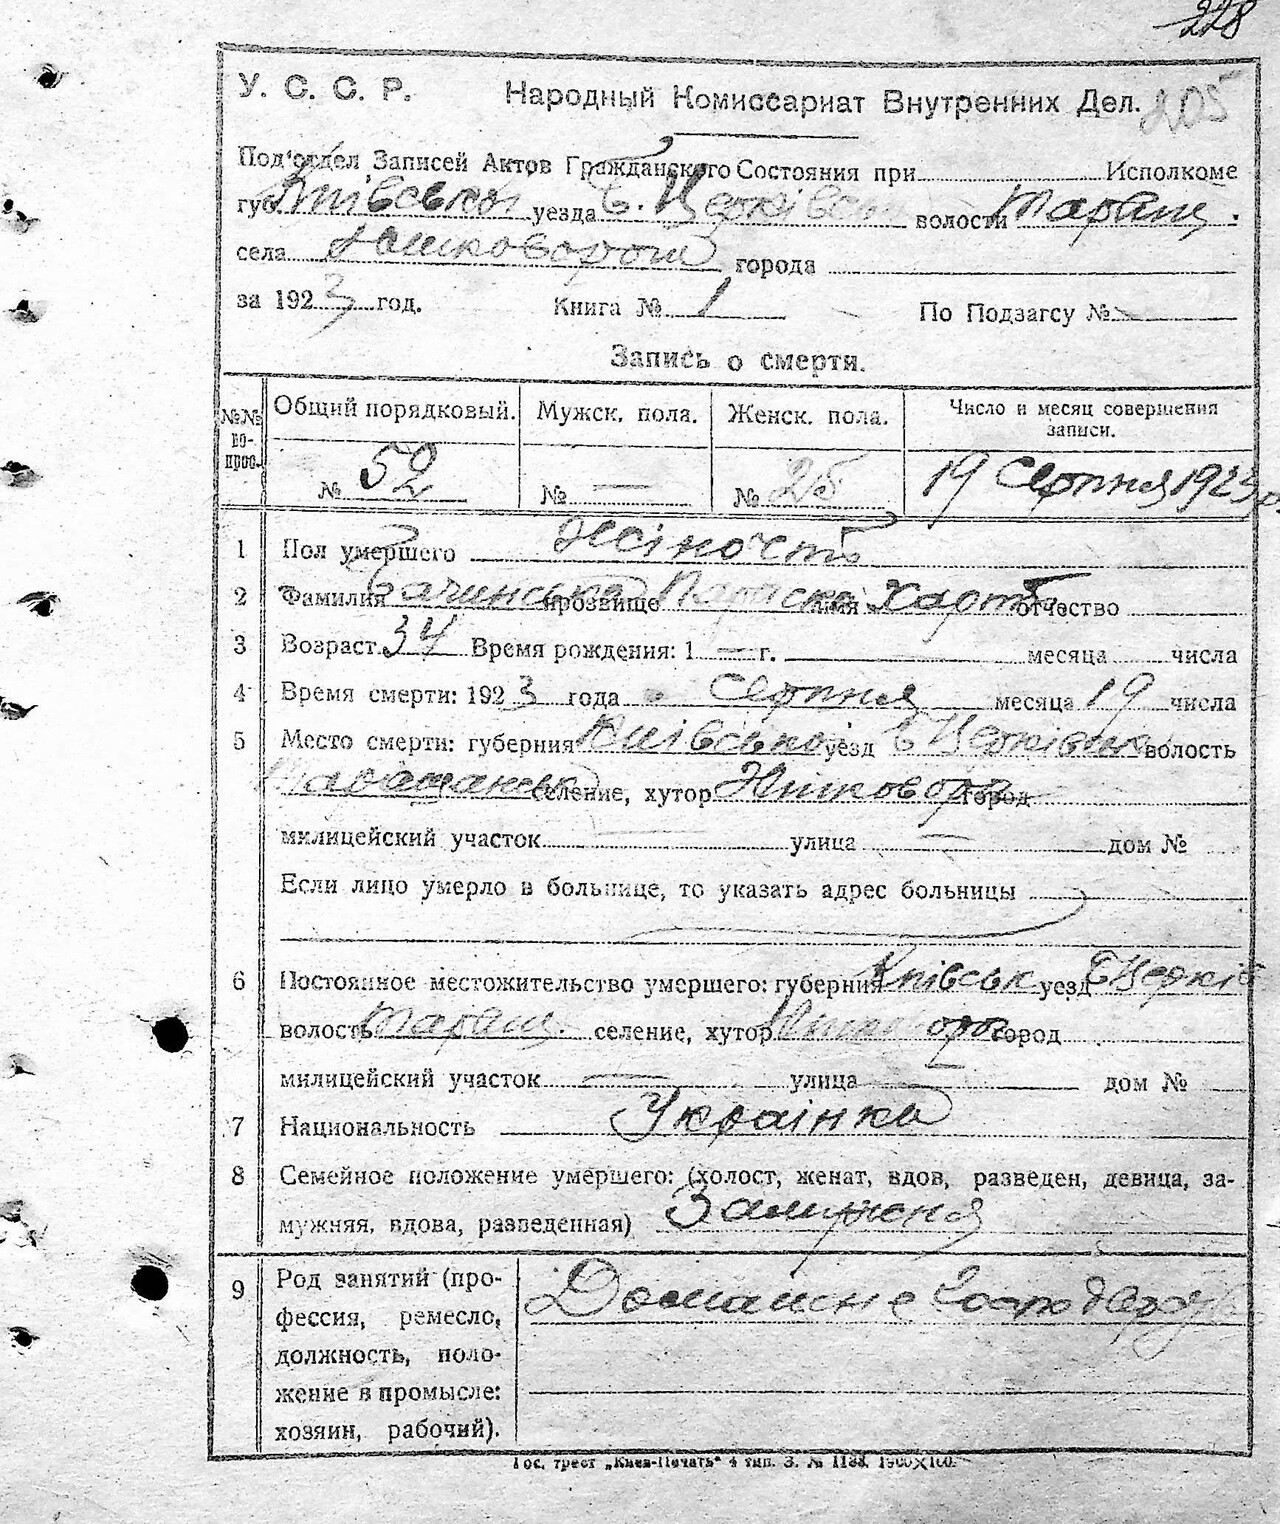 228
У. С. С. Р. Народный Комиссариат Внутренних Дел. 205
Под'отдел Записей Актов Гражданского Состояния при Исполкоме
губ Київської уезда Б. Церківськ волости Таращ.
села города
за 1923 год. Книга № 1 По Подзагсу № —
Запись о смерти.
№№ во-прос. Общий порядковый. Мужск. пола. Женск. пола. Число и месяц совершения записи.
№ 52 № — № 25 19 Серпня 1923 р.
1 Пол умершего Жіночть
2 Фамилия Бачинська прозвище Параска имя Харт отчество
3 Возраст 34 Время рождения: 1 — г. месяца числа
4 Время смерти: 1923 года Серпня месяца 19 числа
5 Место смерти: губерния Київсько уезд Б Церківськ волость
Таращанськ селение, хутор город
милицейский участок — улица — дом №
Если лицо умерло в больнице, то указать адрес больницы
6 Постоянное местожительство умершего: губерния Київськ уезд Б Церків
волость Таращ. селение, хутор город
милицейский участок — улица — дом №
7 Национальность Українка
8 Семейное положение умершего: (холост, женат, вдов, разведен, девица, за-
мужняя, вдова, разведенная) Замужня
9 Род занятий (про-
фессия, ремесло,
должность, поло-
жение в промысле:
хозяин, рабочий).
Домашне
Гос. трест „Киев-Печать“ 4 тип. З. № 1188. 1900×100.